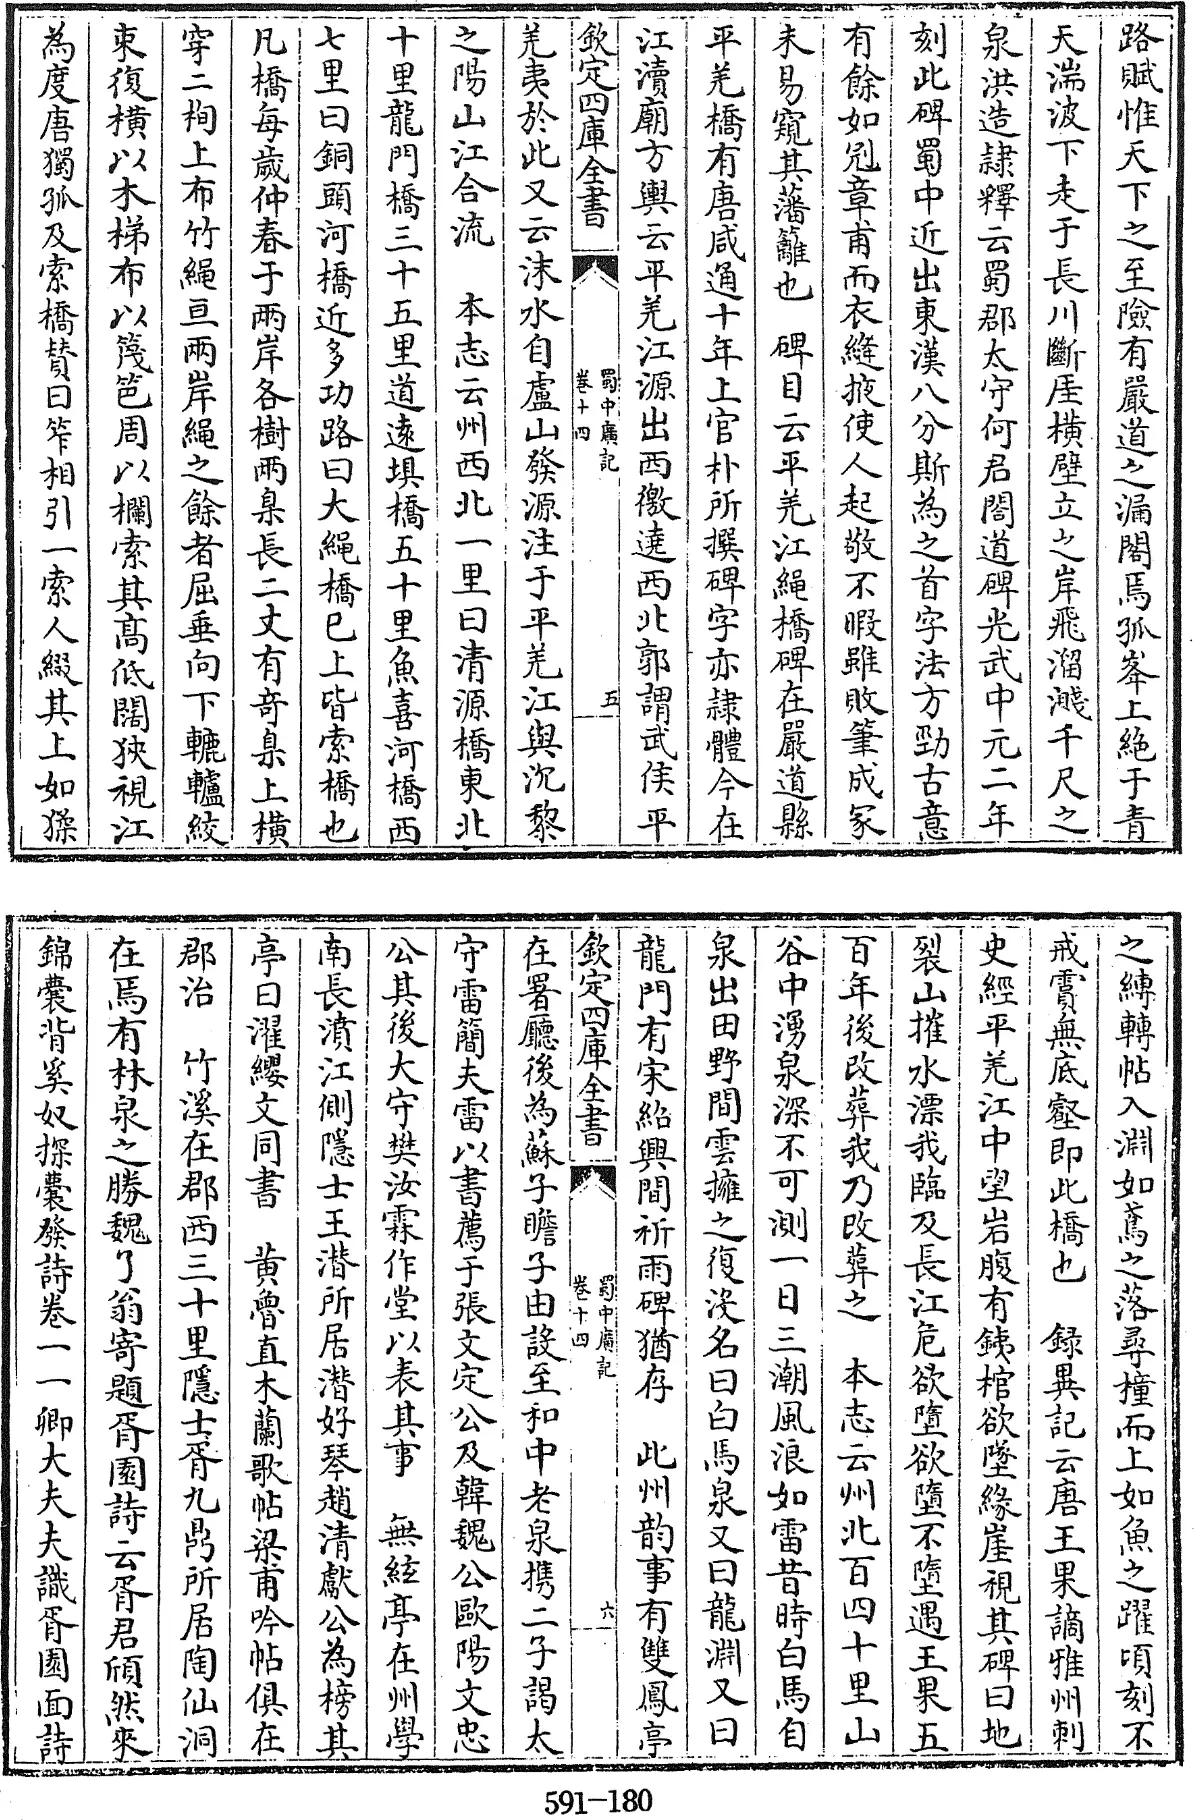 路賦惟天下之至險有嚴道之漏閣焉孤峯上絶于青
天湍波下走于長川斷厓橫壁立之岸飛溜濺千尺之
泉洪造隷釋云蜀郡太守何君閣道碑光武中元二年
刻此碑蜀中近出東漢八分斯為之首字法方勁古意
有餘如冠章甫而衣縫掖使人起敬不暇雖敗筆成冢
未易窺其藩籬也　碑目云平羌江繩橋碑在嚴道縣
平羌橋有唐咸通十年上官朴所撰碑字亦隷體今在
江瀆廟方輿云平羌江源出西徼遶西北郭謂武侯平
欽定四庫全書
蜀中廣記
卷十四
五
羌夷於此又云沫水自盧山發源注于平羌江與沉黎
之陽山江合流　本志云州西北一里曰清源橋東北
十里龍門橋三十五里道遠垻橋五十里魚喜河橋西
七里曰銅頭河橋近多功路曰大繩橋已上皆索橋也
凡橋每歲仲春于兩岸各樹兩臬長二丈有竒臬上橫
穿二栒上布竹繩亘兩岸繩之餘者屈垂向下轆轤絞
束復橫以木梯布以篾笆周以欄索其髙低闊狹視江
為度唐獨孤及索橋賛曰笮相引一索人綴其上如猱
之縳轉帖入淵如鳶之落尋橦而上如魚之躍頃刻不
戒霣無底壑即此橋也　録異記云唐王果謫雅州刺
史經平羌江中望岩腹有鐵棺欲墜緣崖視其碑曰地
裂山摧水漂我臨及長江危欲墮欲墮不墮遇王果五
百年後改葬我乃改葬之　本志云州北百四十里山
谷中湧泉深不可測一日三潮風浪如雷昔時白馬自
泉出田野間雲擁之復沒名曰白馬泉又曰龍淵又曰
龍門有宋紹興間祈雨碑猶存　此州韵事有雙鳳亭
欽定四庫全書
蜀中廣記
卷十四
六
在署廳後為蘇子瞻子由設至和中老泉携二子謁太
守雷簡夫雷以書薦于張文定公及韓魏公歐陽文忠
公其後大守樊汝霖作堂以表其事　無絃亭在州學
南長濆江側隱士王潛所居潛好琴趙清獻公為榜其
亭曰濯纓文同書　黄魯直木蘭歌帖梁甫吟帖俱在
郡治　竹溪在郡西三十里隱士胥九鼎所居陶仙洞
在焉有林泉之勝魏了翁寄題胥園詩云胥君頎然來
錦囊背奚奴探囊發詩卷一一卿大夫夫識胥園面詩
591—180